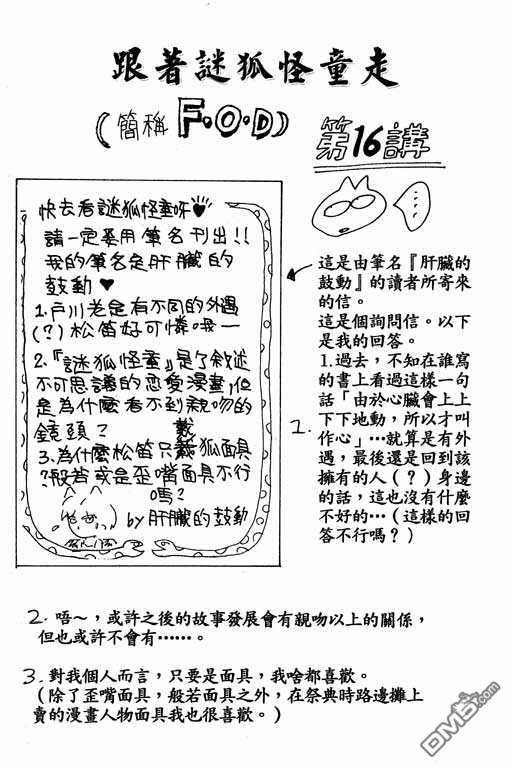 跟著謎狐怪童走
(簡稱F·O·D)
第16講
快去看謎狐怪童呀♥
請一定要用筆名刊出!!
我的筆名是肝臟的
鼓動♥
1.戶川老是有不同的外遇
(?)松笛好可憐哦一
2.『謎狐怪童』是了敘述
不可思議的戀愛漫畫,但
是為什麼看不到親吻的
鏡頭?
戴
3.為什麼松笛只戴狐面具
?般若或是歪嘴面具不行
嗎?
by肝臟的鼓動
這是由筆名『肝臟的
鼓動』的讀者所寄來
的信。
這是個詢問信。以下
是我的回答。
1.過去,不知在誰寫
的書上看過這樣一句
話「由於心臟會上上
下下地動,所以才叫
作心」…就算是有外
遇,最後還是回到該
擁有的人(?)身邊
的話,這也沒有什麼
不好的…(這樣的回
答不行嗎?)
1.
2.唔～,或許之後的故事發展會有親吻以上的關係,
但也或許不會有……。
3.對我個人而言,只要是面具,我啥都喜歡。
(除了歪嘴面具,般若面具之外,在祭典時路邊攤上
賣的漫畫人物面具我也很喜歡。)
DM5.com